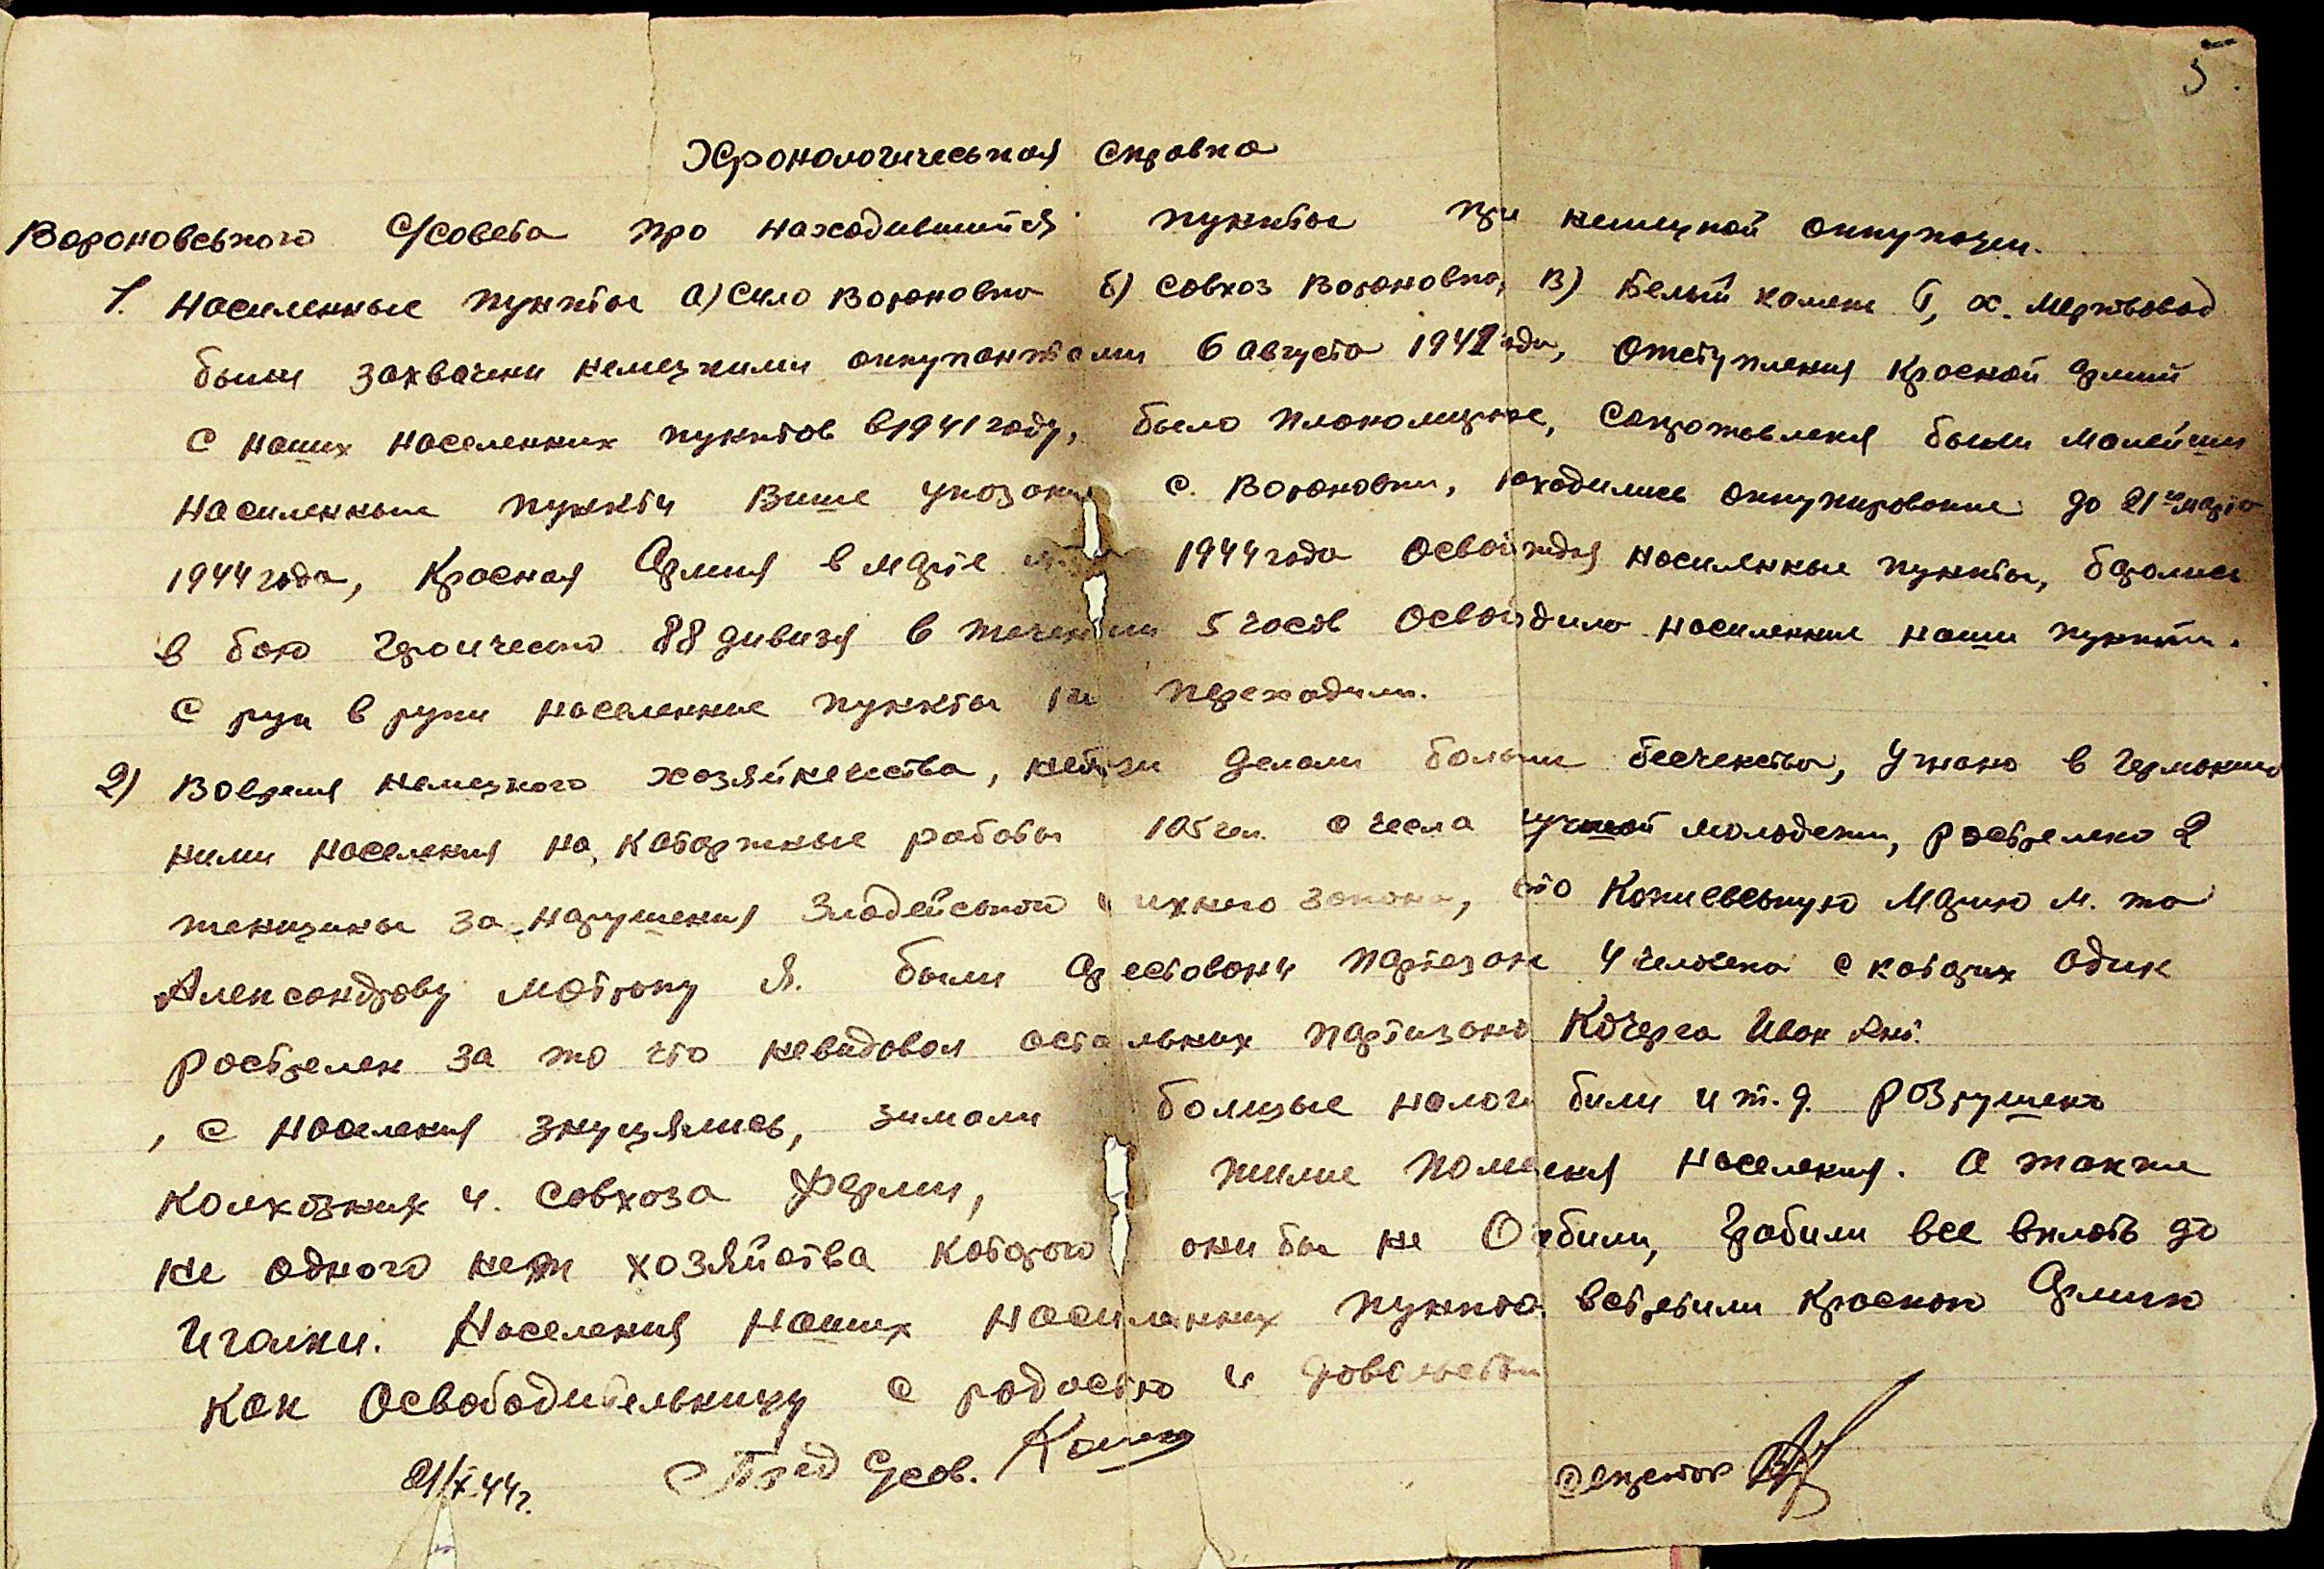 5.
Хронологичеськая справка
Вороновського С/совета про находившийся пункты при немецкой оккупации.
1. Населенные пункты а) Село Вороновка б) совхоз Вороновка, в) Белый камень г, х. Мертвовод
были захвачени немецкими оккупантами 6 августа 1941 года, Отступления Красной Армии
с наших населенних пунктов в 1941 году, было планомерное, Сопротивления были малейши
Населенные пункти више указани с. Вороновки, находились оккупированые до 21го марта
1944 года, Красная Армия в марте 1944 года Освобождая населенные пункты, боролись
в бою героическо 88 дивизя в течении 5 часов Освободило населенние наши пункти.
С рук в руки населенние пункты не переходили.
2) Вовремя немецкого хозяйнечества, немци делали большие бесченства, Угнано в Германию
ними населения на каторжные работы 105 чел. с чесла лучшой молодежи, ростреляно 2
женщины за нарушения Злодейського ихнего закона, это Копиевськую Марию М. та
Александрову Мотрону Я. были арестовани партезан 4 человека с которих один
рострелен за то что невидовал остальних партизано Кочерга Иван Ант.
, с населения знущялись, зимали большые налоги били и т. д. розрушено
колхозних и. совхоза ферми, жилие помещения населения. А также
не одного нет хозяйства которого они бы не Ограбили, грабили все вплоть до
иголки. Населения наших населенних пункто встретили красною Армию
как Освободительницу с радостю и довольством
21/X-44 г. Пред С/сов.